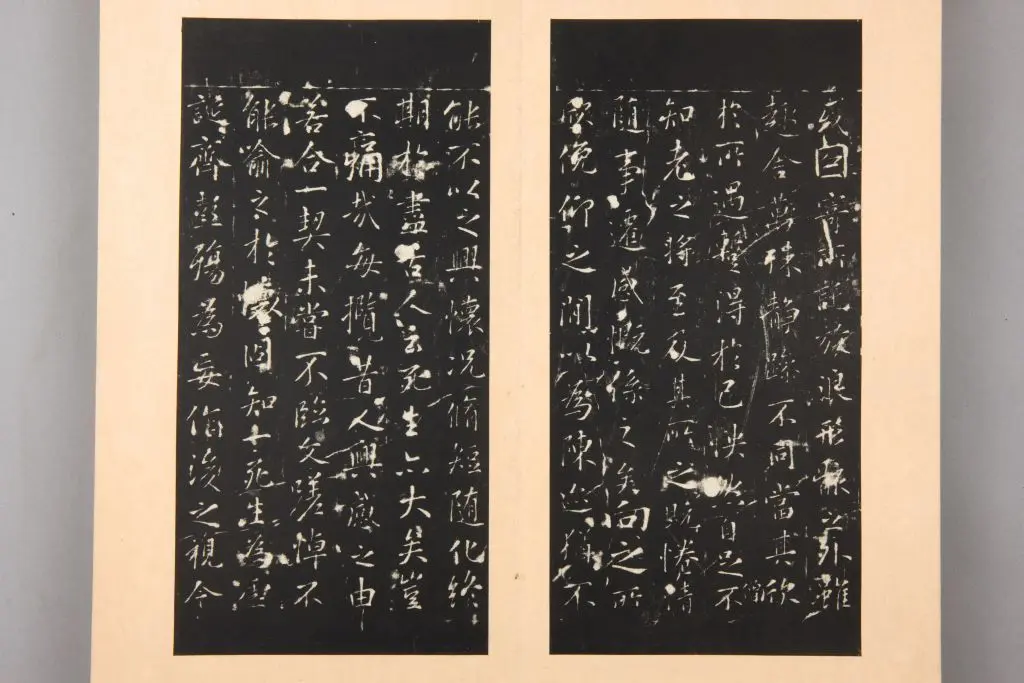 或因寄所託放浪形骸之外雖
趣舍萬殊靜躁不同當其欣
僧
於所遇蹔得於己怏然自足不
知老之將至及其所之既惓情
隨事遷感慨係之矣向之所
欣俛仰之間以為陳迹猶不
能不以之興懷況脩短随化終
期於盡古人云死生亦大矣豈
不痛哉每攬昔人興感之由
若合一契未嘗不臨文嗟悼不
能喻之於懷固知一死生為虛
誕齊彭殤為妄作後之視今